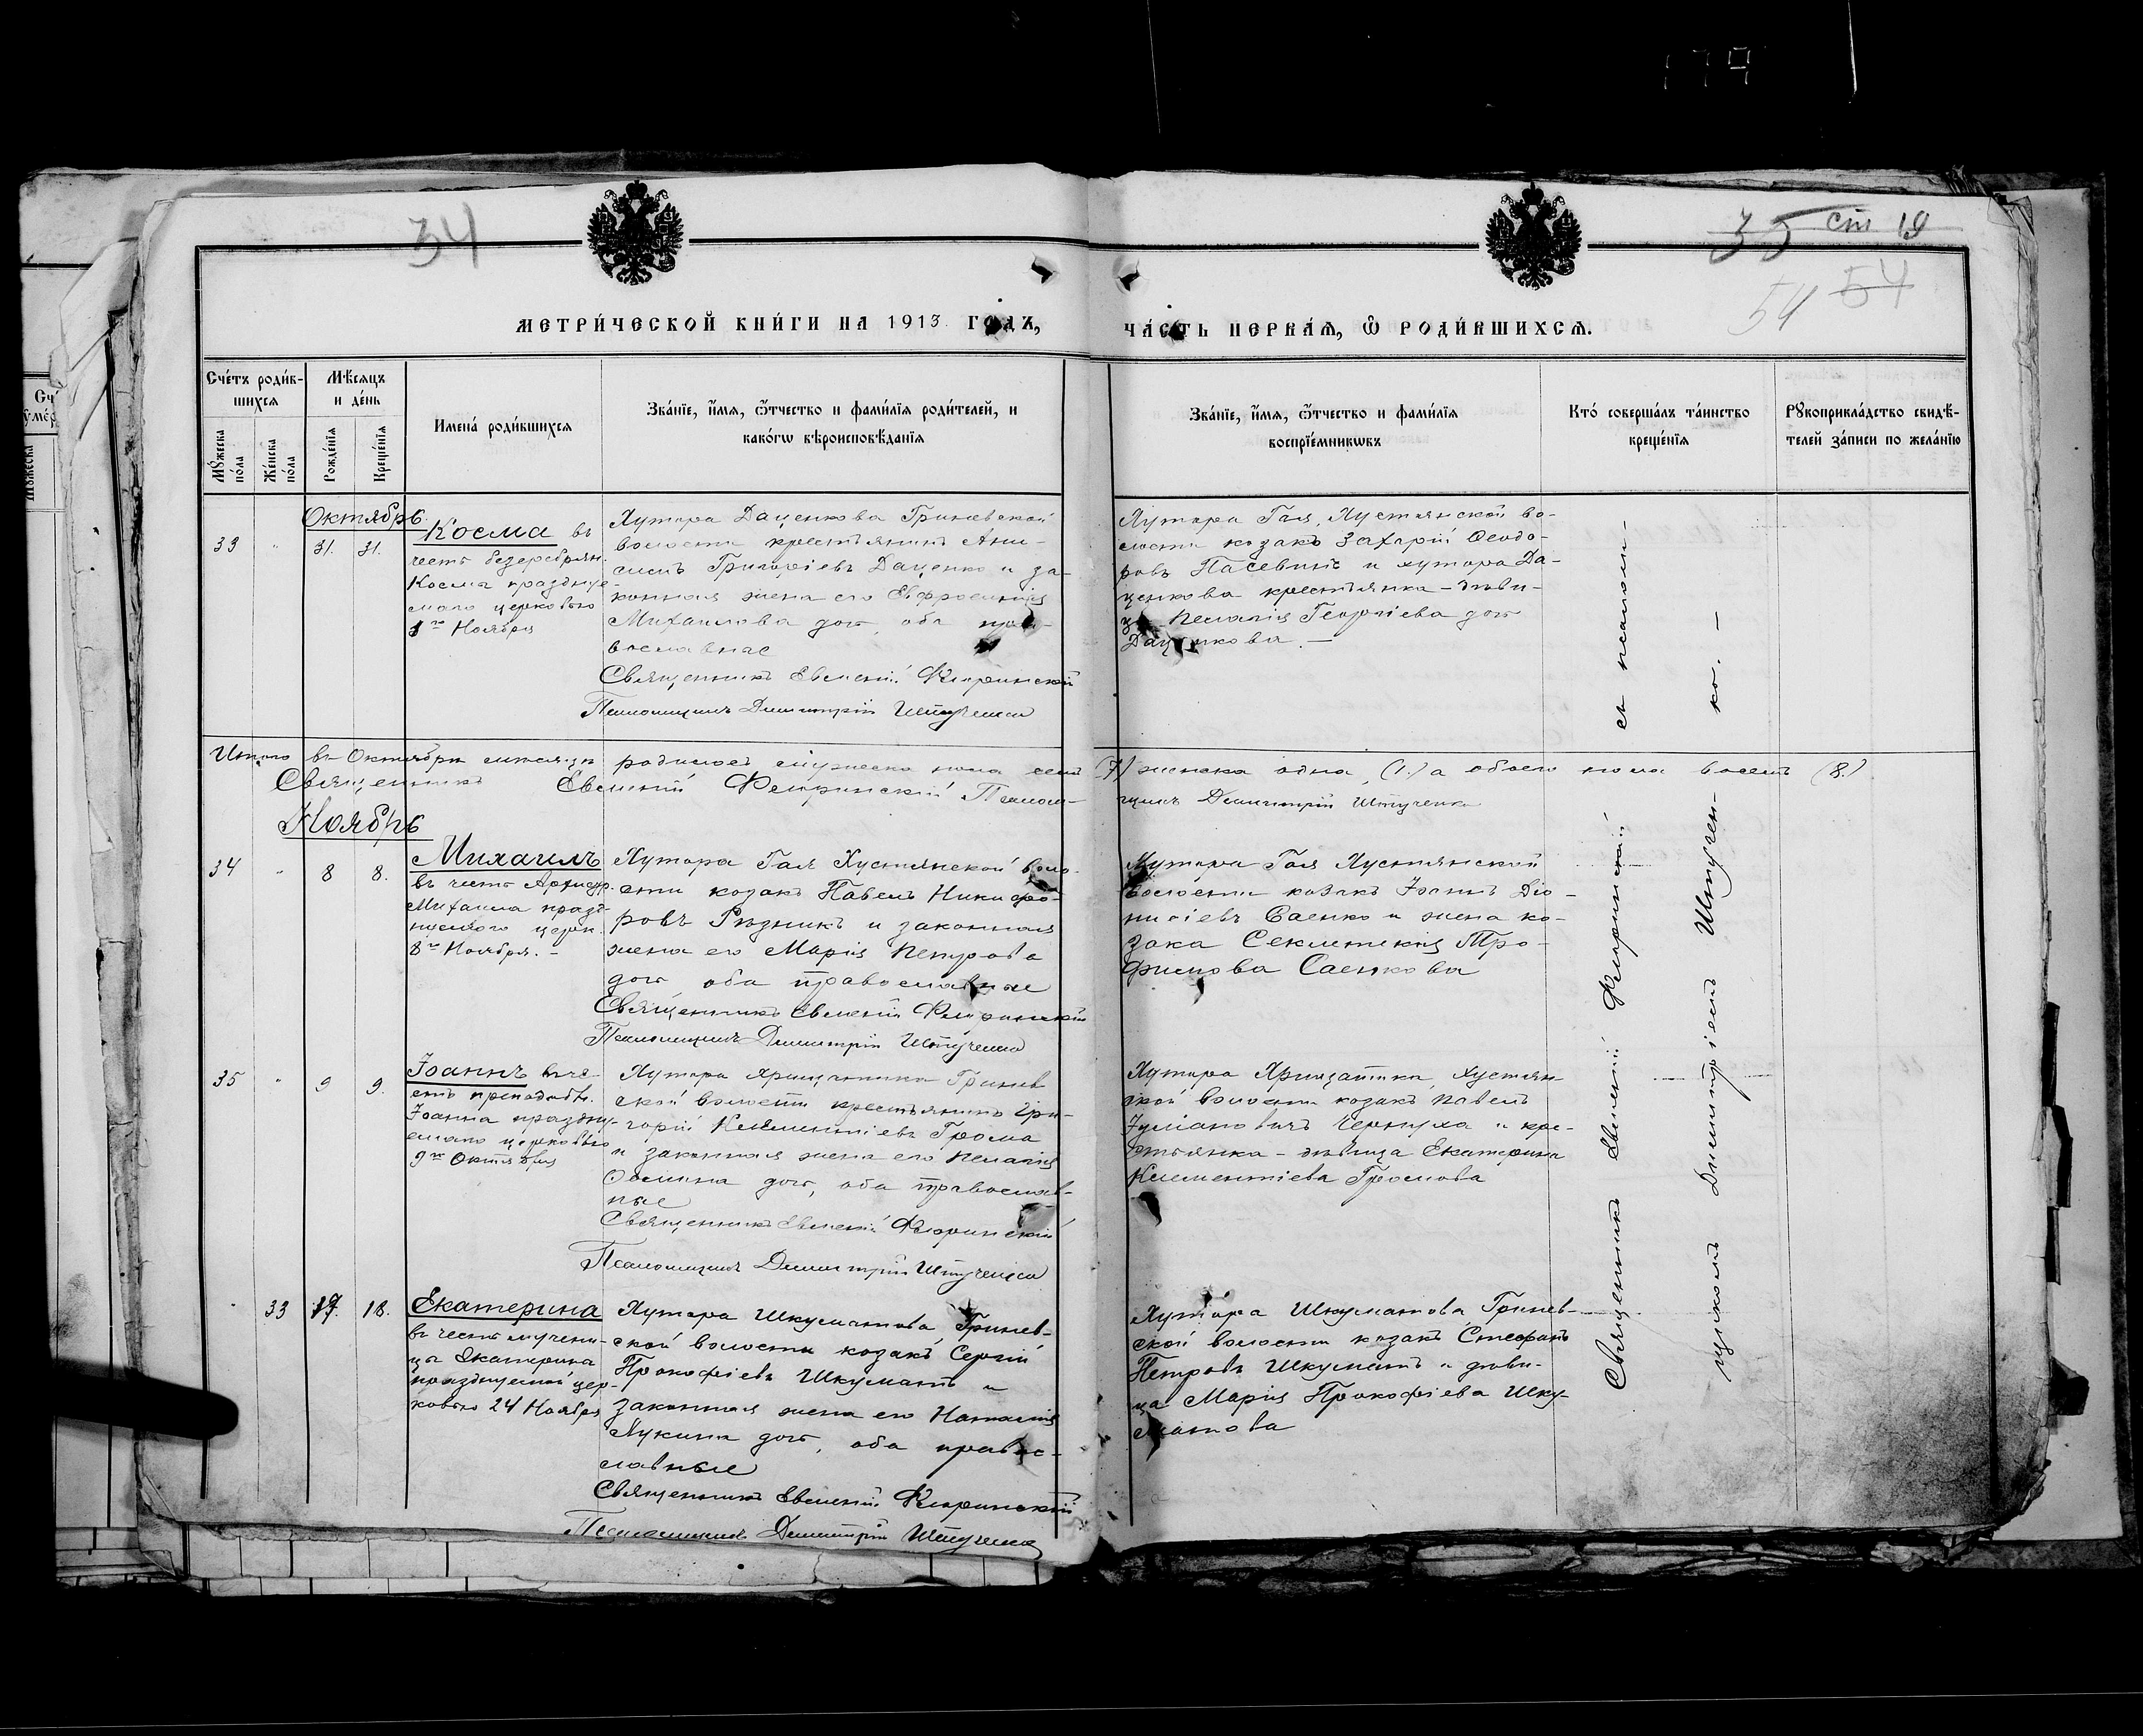 179
34
35 ст 19
54 54
МЕТРИ́ЧЕСКОЙ КНИ́ГИ НА 1913 ГОДЪ,
ЧА́СТЬ ПЕРВАЯ, Ѿ РОДИ́ВШИХСЯ.
Сче́тъ роди́в-
шихся
Мѣсяцъ
и де́нь
Имена̀ роди́вшихся
Зва́нїе, и҆́мя, ѻ҆́тчество и фами́лїя роди́телей, и
како́гѡ вѣроисповѣ́данїя
Зва́нїе, и҆́мя, ѻ҆́тчество и фами́лїя
воспрїе́мникѡвъ
Кто̀ соверша́лъ та́инство
креще́нїя
Рꙋкоприкла́дство свидѣ́-
телей за́писи по жела́нїю
Мꙋ́жеска
по́ла
Же́нска
по́ла
Рожде́нїя
Креще́нїя
Октябрь.
33 " 31. 31.
Косма въ
честь безсребрян.
Космы праздnуе-
маго церковью
1го Ноября
Хутора Даценкова Гриневской
волости крестьянинъ Ани-
симъ Григоріевъ Даценко и за-
конная жена его Евфросинія
Михаилова дочь, оба пра-
вославные
Священникъ Евменій Флоринскій
Псаломщикъ Димитрій Штученко
Хутора Галя, Хустянской во-
лости козакъ Захарій Ѳеодо-
ровъ Пасевинъ и хутора Да-
ценкова крестьянка - дѣви-
ца Пелагія Георгіева дочь
Даценкова. —
Итого въ Октябрѣ мѣсяцѣ родилось мужеска пола семь (7) женска одна, (1.) а обоего пола восемь (8.)
Священникъ Евменій Флоринскій Псалом-
щикъ Димитрій Штученко
Ноябрь
34 " 8 8.
Михаилъ
въ честь Архистр.
Михаила празд-
нуемаго церк.
8го Ноября. -
Хутора Галя Хустянской воло-
сти козакъ Павелъ Никифо-
ровъ Рѣзникъ и законная
жена его Марія Петрова
дочь, оба православные
Священникъ Евменій Флоринскій
Псаломщикъ Димитрій Штученко
Хутора Галя Хустянской
волости козакъ Іоаннъ Діо-
нисіевъ Саенко и жена ко-
зака Секлитикія Тро-
фимова Саенкова
35 " 9 9.
Іоаннъ въ че-
сть преподобн.
Іоанна праздну-
емаго церковью
9го Октября
Хутора Хрищатика Гринев
ской волости крестьянинъ Гри-
горій Климентіевъ Грома
и законная жена его Пелагія
Ѳомина дочь, оба православ-
ные
Священникъ Евменій Флоринскій
Псаломщикъ Димитрій Штученко
Хутора Хрищатика, Хустян-
ской волости козакъ Павелъ
Іуліановичъ Чернуха и кре-
стьянка - дѣвица Екатерина
Климентіева Громова
" 33 17. 18.
Екатерина
въ честь мучени-
цы Екатерины
празднуемой цер-
ковью 24 Ноября
Хутора Шкуматова, Гринев-
ской волости козакъ Сергій
Прокофіевъ Шкуматъ и
законная жена его Наталія
Лукина дочь, оба право-
славные
Священникъ Евменій Флоринскій
Псаломщикъ Димитрій Штученко
Хутора Шкуматова, Гринев-
ской волости козакъ Стефанъ
Петровъ Шкуматъ и дѣви-
ца Марія Прокофіева Шку-
матова
Священникъ Евменій Флоринскій съ псалом-
щикомъ Димитріемъ Штучен-
ко. —